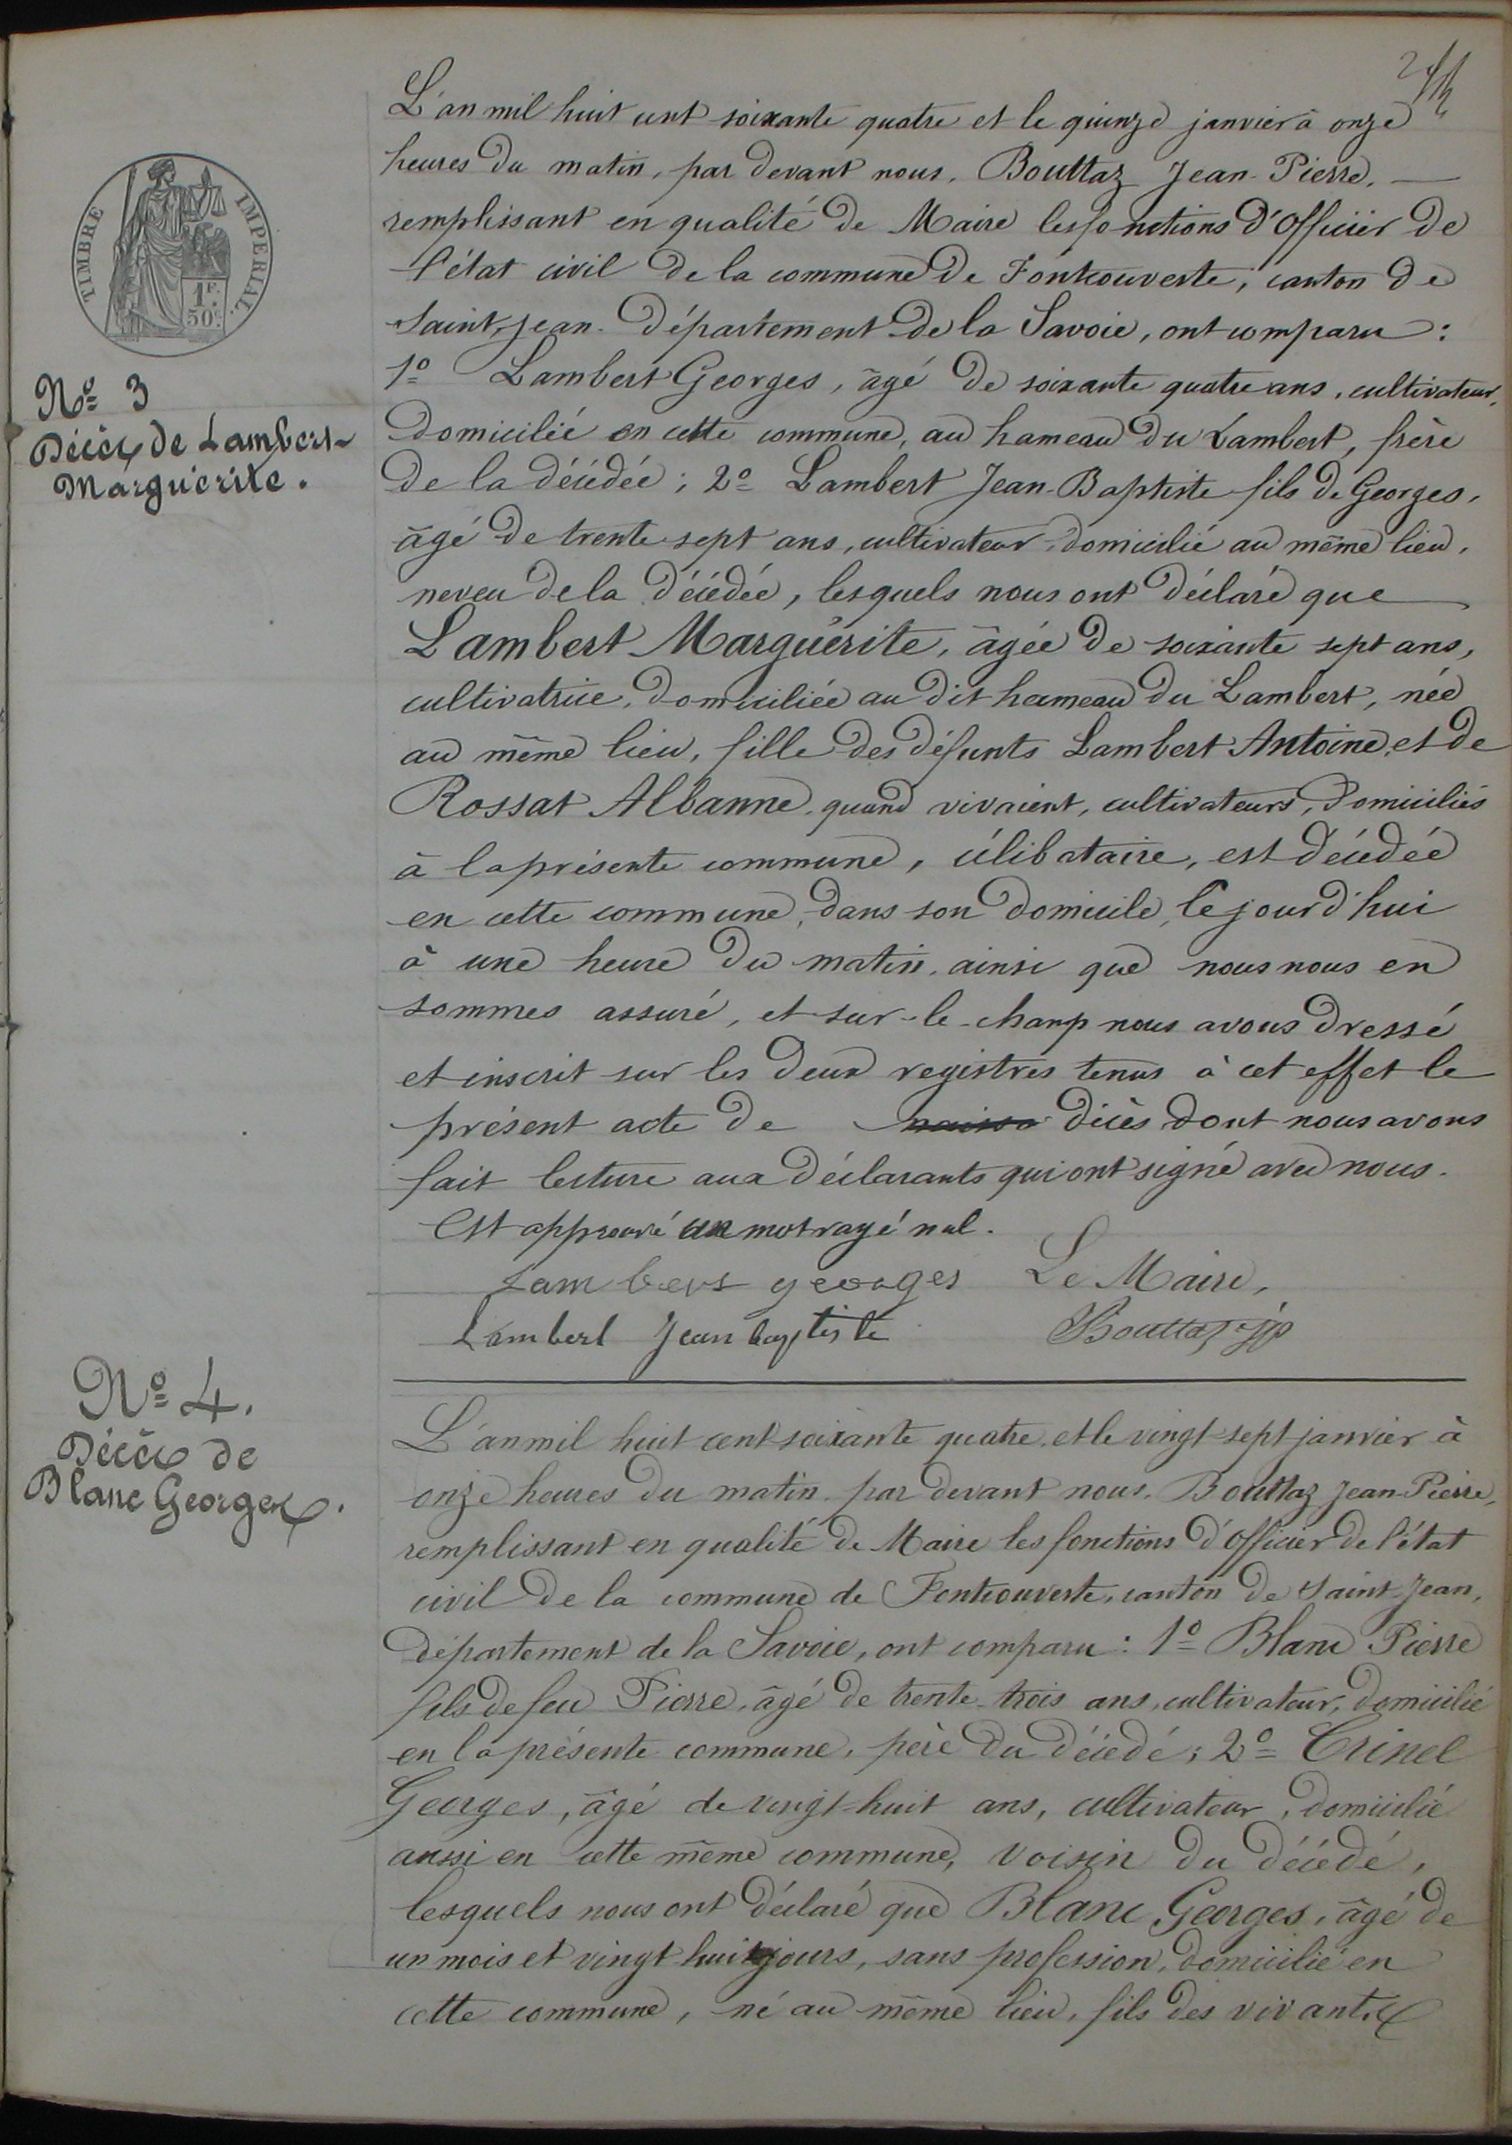 2
L'an mil huit cent soixante quatre et le quinze janvier à onze
heures du matin, par devant nous, Bouttaz Jean-Pierre,
remplissant en qualité de Maire les fonctions d'Officier de
l'état civil de la commune de Fontcouverte, canton de
Saint-Jean. Département de la Savoie, ont comparu :
1º Lambert Georges, âgé de soixante quatre ans, cultivateur,
domiciliée en cette commune, au hameau du Lambert, frère
de la décédée ; 2º Lambert Jean-Baptiste fils de Georges,
âgé de trente sept ans, cultivateur, domicilié au même lieu,
neveu de la décédée, lesquels nous ont déclaré que
Lambert Marguérite, âgée de soixante sept ans,
cultivatrice, domiciliée au dit hameau du Lambert, née
au même lieu, fille des défunts Lambert Antoine, et de
Rossat Albanne, quand vivaient, cultivateurs, domiciliés
à la présente commune, célibataire, est décédée
en cette commune, dans son domicile, le jourd'hui
à une heure du matin, ainsi que nous nous en
sommes assuré, et sur-le-champ nous avons dressé
et inscrit sur les deux registres tenus à cet effet le
présent acte de naissa décès dont nous avons
fait lecture aux déclarants qui ont signé avec nous.
Est approuvé un mot rayé nul.
Lambert georges Le Maire,
Lambert Jean baptiste Bouttaz jp
TIMBRE IMPERIAL.
1F. 50c.
Nº 3
Décès de Lambert
Marguérite.
Nº 4.
Décès de
Blanc Georges.
L'an mil huit cent soixante quatre, et le vingt-sept janvier à
onze heures du matin, par devant nous, Bouttaz Jean-Pierre,
remplissant en qualité de Maire les fonctions d'Officier de l'état
civil de la commune de Fontcouverte, canton de Saint-Jean,
département de la Savoie, ont comparu : 1º Blanc Pierre
fils de feu Pierre, âgé de trente-trois ans, cultivateur, domicilié
en la présente commune, père du décédé ; 2º Crinel
Georges, âgé de vingt-huit ans, cultivateur, domicilié
aussi en cette même commune, voisin du décédé,
lesquels nous ont déclaré que Blanc Georges, âgé de
un mois et vingt huit jours, sans profession, domicilié en
cette commune, né au même lieu, fils des vivants